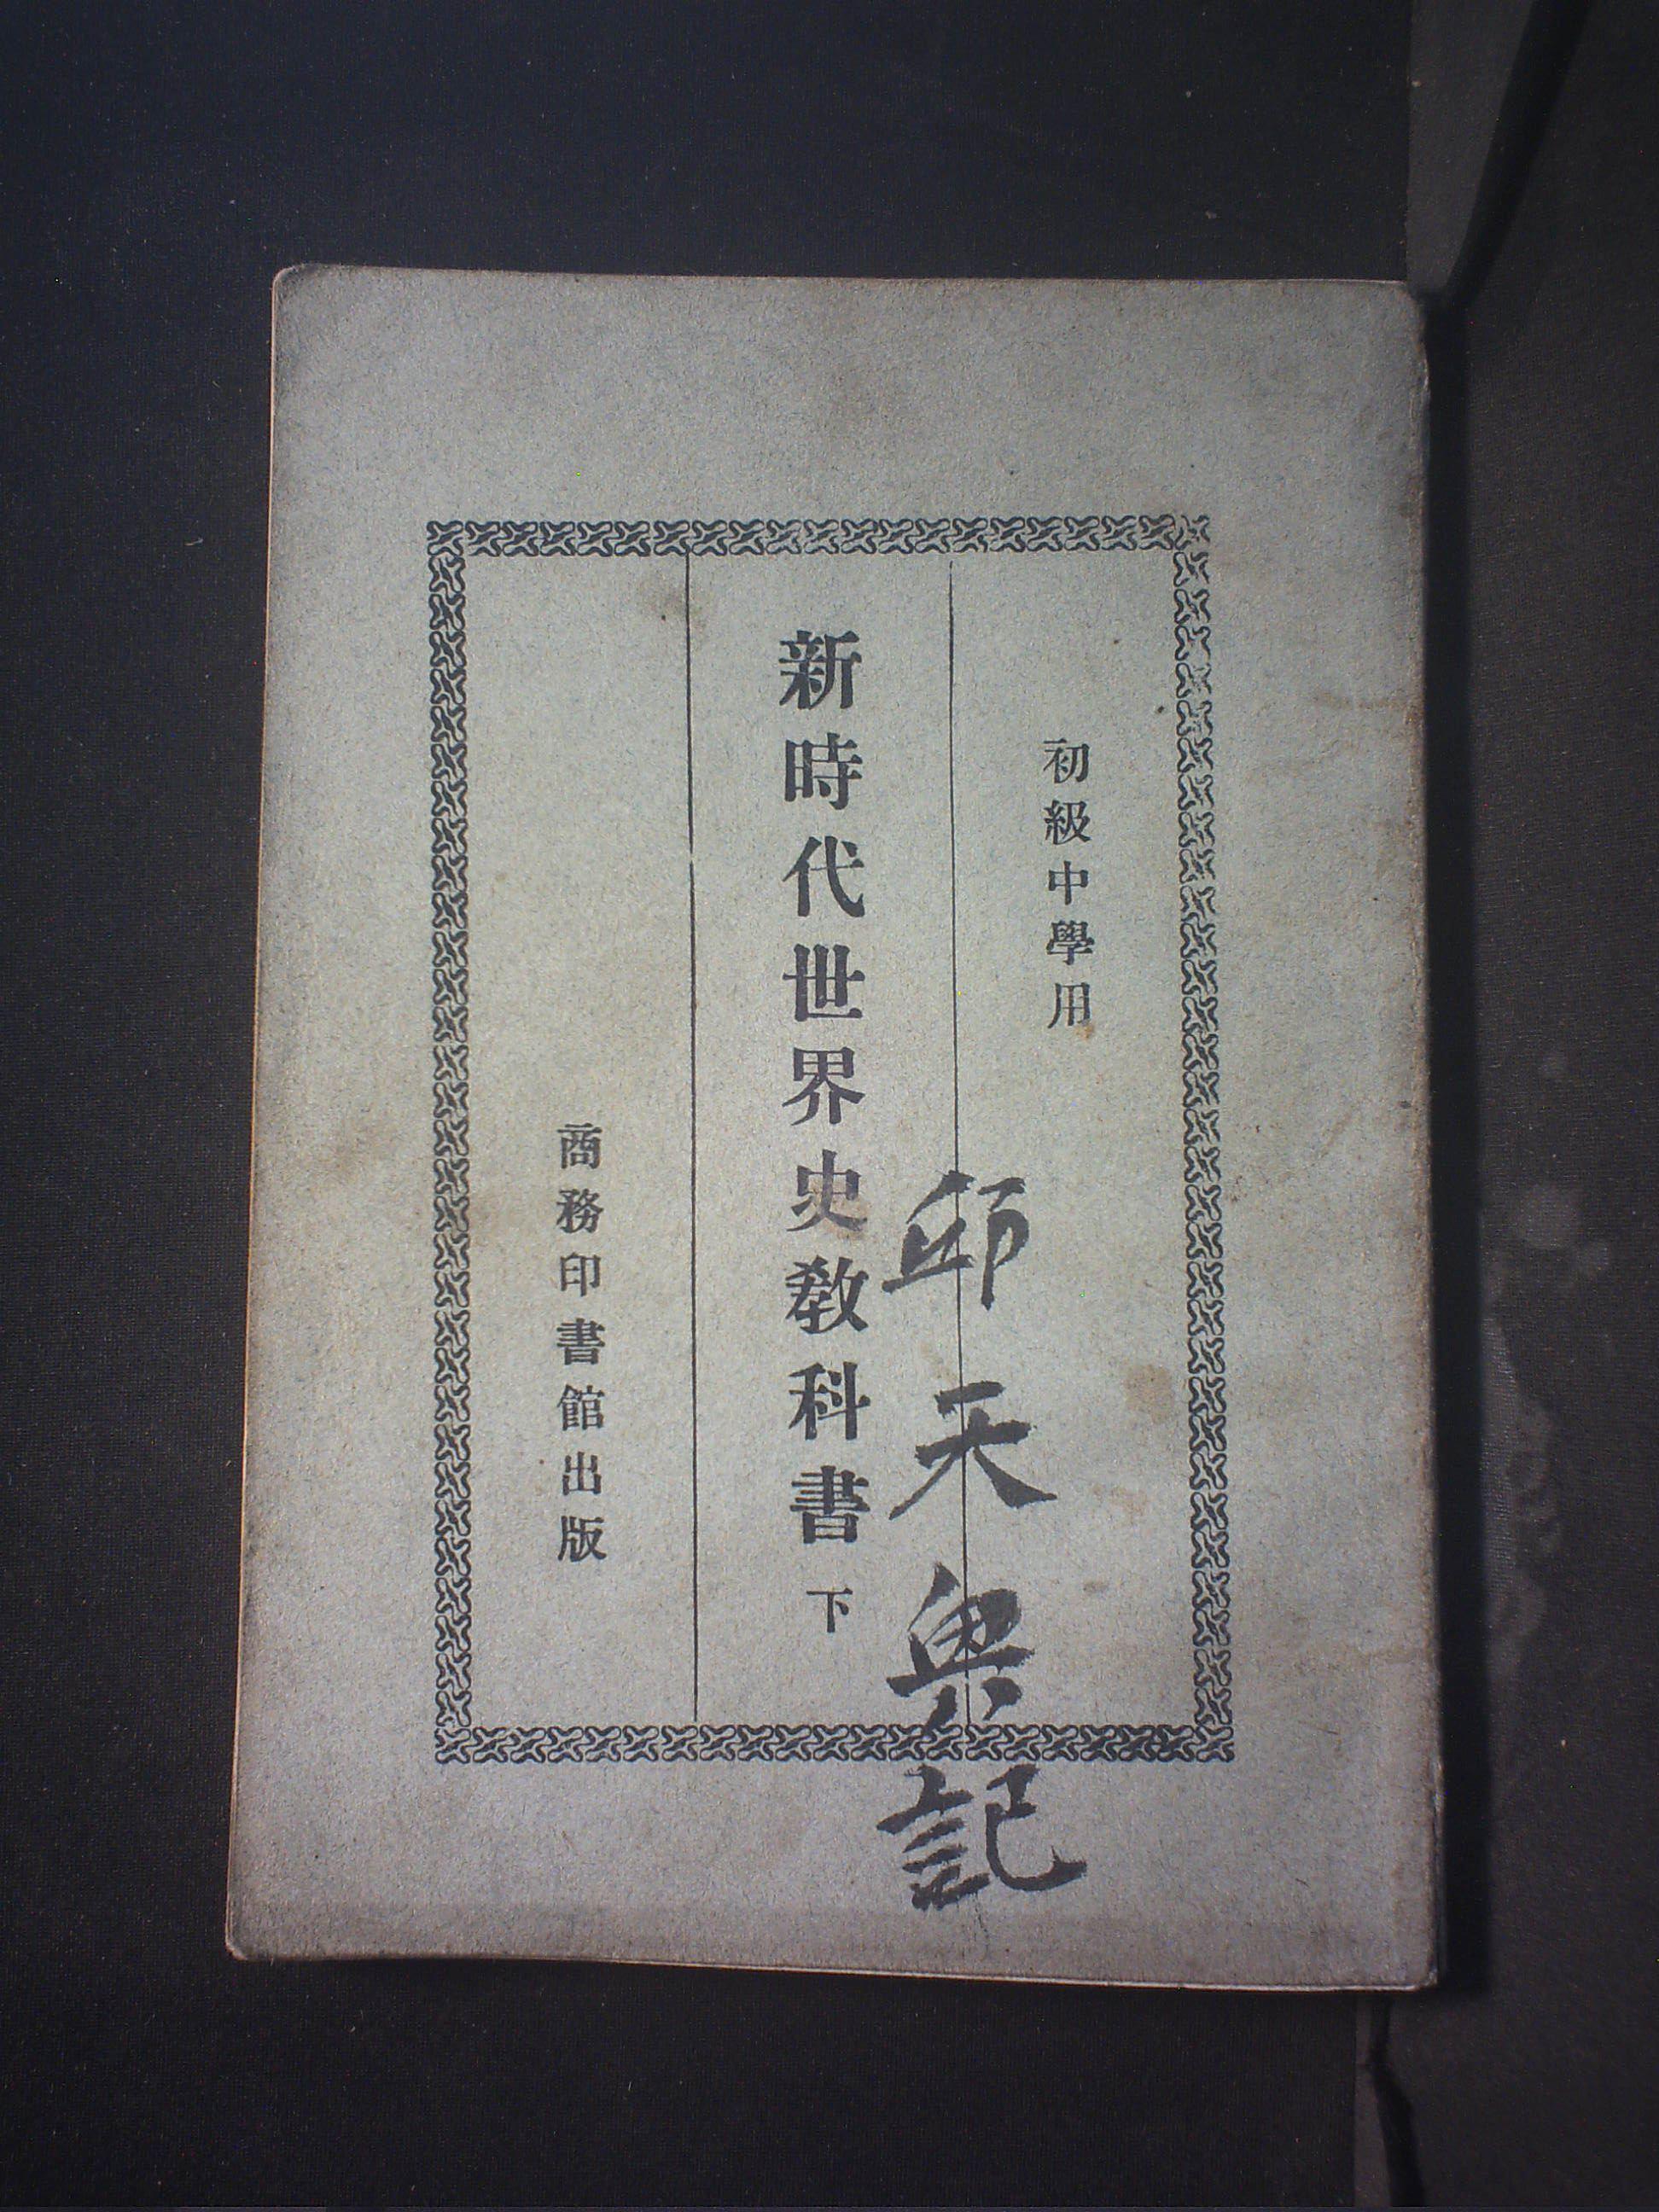 初級中學用
新時代世界史教科書 下
商務印書館出版
邱天
記